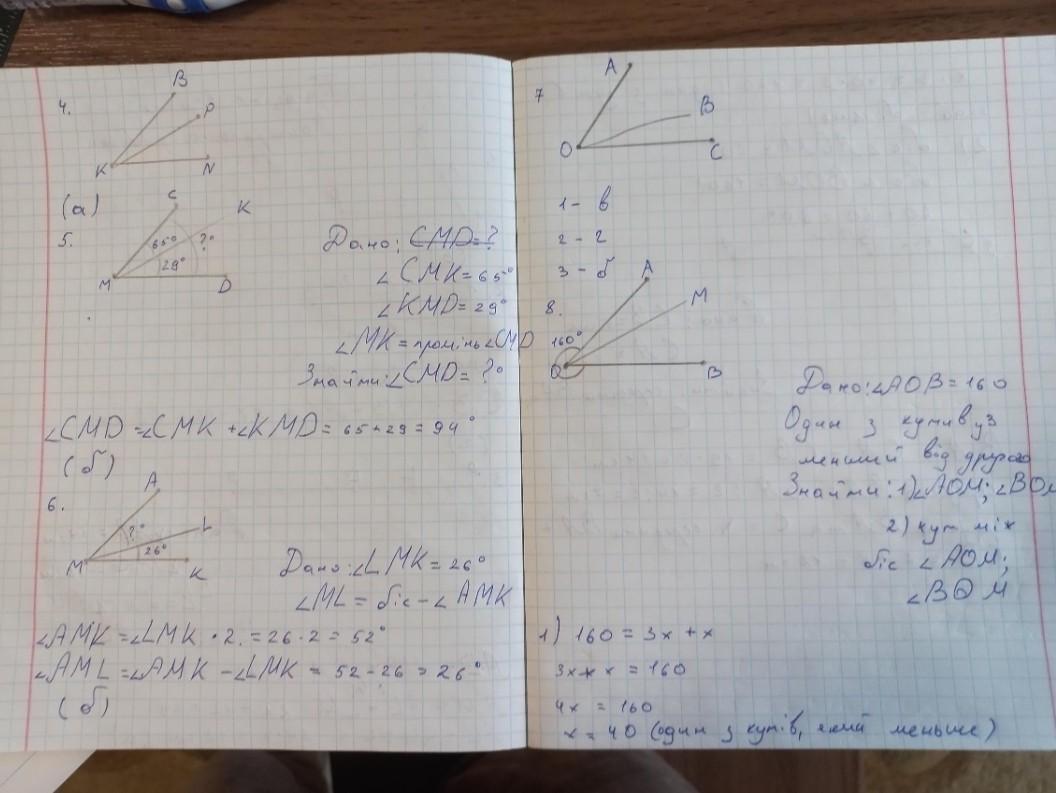 4.
B
P
K
N
(а)
5.
C
K
65°
?°
29°
M
D
Дано: CMD=?
∠CMK=65°
∠KMD=29°
∠MK=промінь ∠CMD
Знайти: ∠CMD=?°
∠CMD=∠CMK+∠KMD=65+29=94°
(б)
6.
A
?°
L
26°
M
K
Дано: ∠LMK=26°
∠ML=біс-∠AMK
∠AMK=∠LMK·2.=26·2=52°
∠AML=∠AMK-∠LMK=52-26=26°
(б)
7
A
B
O
C
1- в
2- г
3-б
8.
A
M
160°
O
B
Дано: ∠AOB=160
Один з кутив у3
менший від другого
Знайти: 1)∠AOM; ∠BOM
2) кут між
біс ∠AOM;
∠BOM
1) 160=3x+x
3x+x=160
4x=160
x=40 (один з кутів, який меньше)